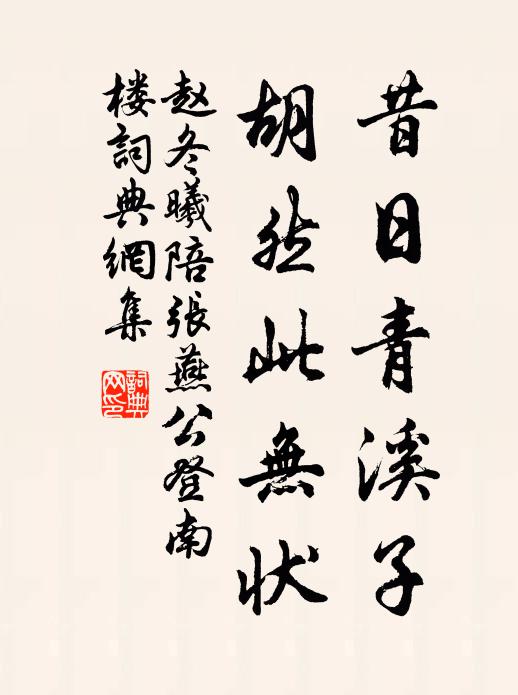 昔日青溪子
胡然此無状
赵冬曦陪張燕公登南
楼詞典網集
詞典網印